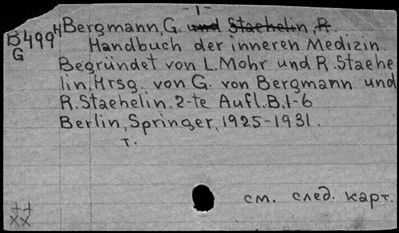 -1-
В499
G
Bergmann, G. und Staehelin, R.
Handbuch der inneren Medizin.
Begründet von L. Mohr und R. Staehe
lin. Hrsg. von G. von Bergmann und
R. Staehelin. 2-te Aufl. B. 1-6
Berlin, Springer, 1925-1931.
т.
см. след. карт.
++
××